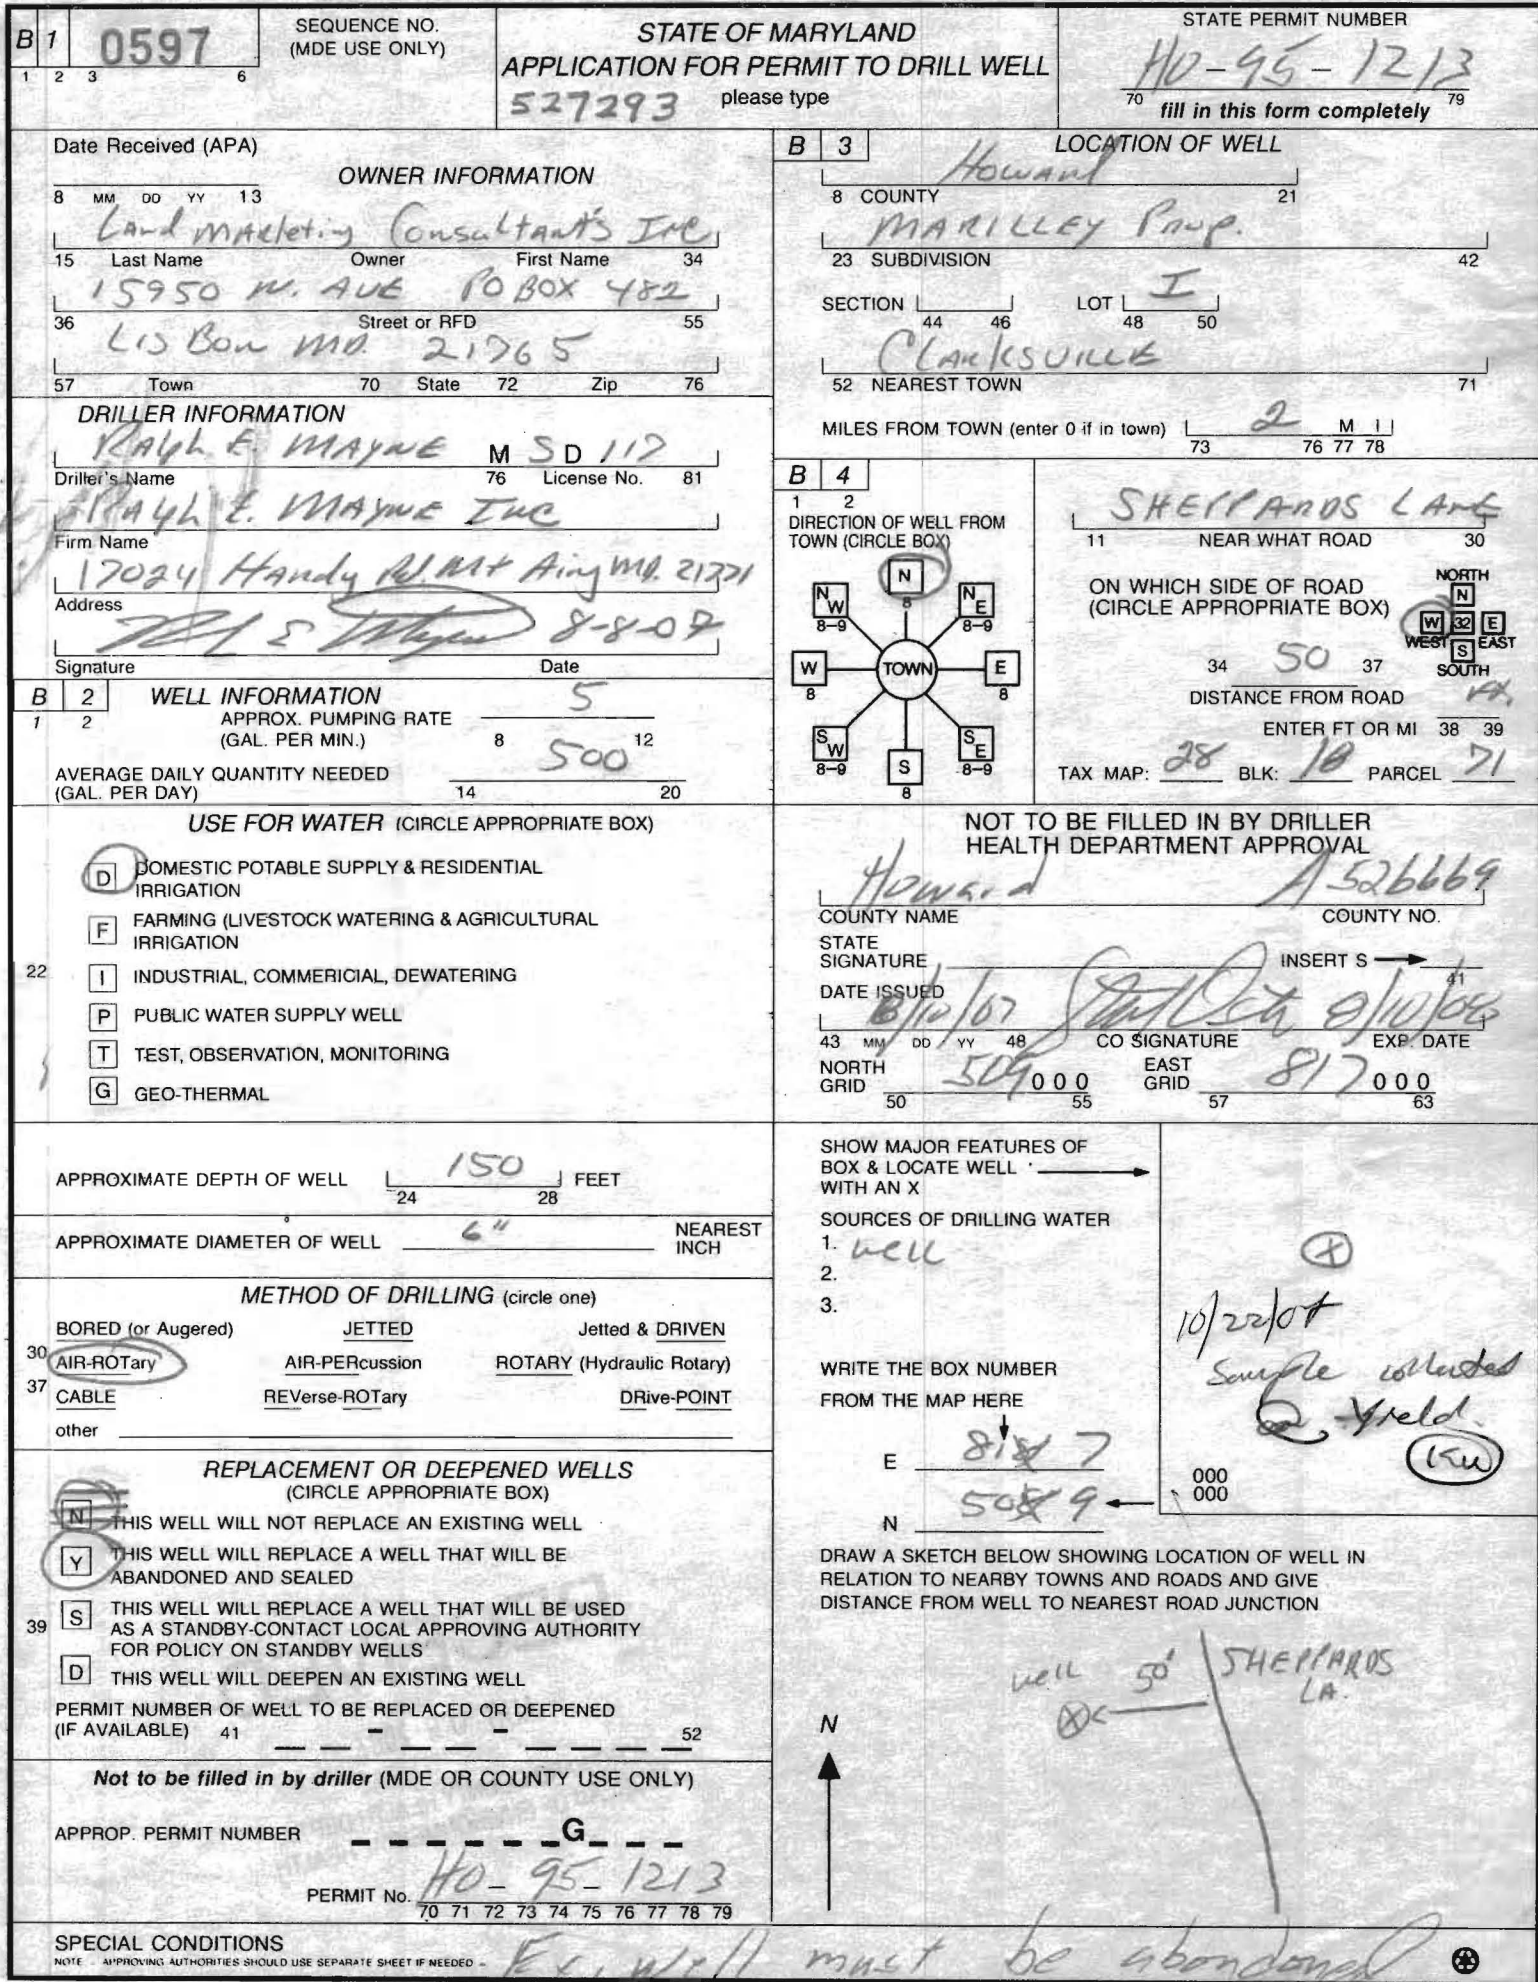 B 1 0597
1 2 3 6
SEQUENCE NO.
(MDE USE ONLY)
STATE OF MARYLAND
APPLICATION FOR PERMIT TO DRILL WELL
527293 please type
STATE PERMIT NUMBER
HO-95-1213
70 79
fill in this form completely
Date Received (APA)
8 MM DD YY 13
OWNER INFORMATION
Land Marketing Consultants Inc
15 Last Name Owner First Name 34
15950 N. AVE PO BOX 482
36 Street or RFD 55
LISBon MD. 21765
57 Town 70 State 72 Zip 76
DRILLER INFORMATION
RALph E. MAYNE M SD 117
Driller's Name 76 License No. 81
RALph E. MAYNE INC
Firm Name
17024 Handy Rd. Mt Airy MD. 21771
Address
8-8-07
Signature Date
B 2 WELL INFORMATION
1 2 APPROX. PUMPING RATE
(GAL. PER MIN.) 5
8 12
AVERAGE DAILY QUANTITY NEEDED
(GAL. PER DAY) 500
14 20
USE FOR WATER (CIRCLE APPROPRIATE BOX)
D DOMESTIC POTABLE SUPPLY & RESIDENTIAL
IRRIGATION
F FARMING (LIVESTOCK WATERING & AGRICULTURAL
IRRIGATION
22 I INDUSTRIAL, COMMERICIAL, DEWATERING
P PUBLIC WATER SUPPLY WELL
T TEST, OBSERVATION, MONITORING
G GEO-THERMAL
APPROXIMATE DEPTH OF WELL 150 FEET
24 28
APPROXIMATE DIAMETER OF WELL 6" NEAREST
INCH
METHOD OF DRILLING (circle one)
BORED (or Augered) JETTED Jetted & DRIVEN
30 AIR-ROTary AIR-PERcussion ROTARY (Hydraulic Rotary)
37 CABLE REVerse-ROTary DRive-POINT
other
REPLACEMENT OR DEEPENED WELLS
(CIRCLE APPROPRIATE BOX)
N THIS WELL WILL NOT REPLACE AN EXISTING WELL
Y THIS WELL WILL REPLACE A WELL THAT WILL BE
ABANDONED AND SEALED
39 S THIS WELL WILL REPLACE A WELL THAT WILL BE USED
AS A STANDBY-CONTACT LOCAL APPROVING AUTHORITY
FOR POLICY ON STANDBY WELLS
D THIS WELL WILL DEEPEN AN EXISTING WELL
PERMIT NUMBER OF WELL TO BE REPLACED OR DEEPENED
(IF AVAILABLE) 41 - - 52
Not to be filled in by driller (MDE OR COUNTY USE ONLY)
APPROP. PERMIT NUMBER G
PERMIT No. HO-95-1213
70 71 72 73 74 75 76 77 78 79
B 3 LOCATION OF WELL
Howard
8 COUNTY 21
MARILLEY Prop.
23 SUBDIVISION 42
SECTION LOT I
44 46 48 50
CLARKSVILLE
52 NEAREST TOWN 71
MILES FROM TOWN (enter 0 if in town) 2 M I
73 76 77 78
B 4
1 2
DIRECTION OF WELL FROM
TOWN (CIRCLE BOX)
N
8
NW NE
8-9 8-9
W TOWN E
8 8
SW SE
8-9 8-9
S
8
SHEPPARDS LANE
11 NEAR WHAT ROAD 30
ON WHICH SIDE OF ROAD
(CIRCLE APPROPRIATE BOX)
NORTH
N
W 32 E
WEST EAST
S
SOUTH
34 50 37
DISTANCE FROM ROAD
ft.
ENTER FT OR MI 38 39
TAX MAP: 28 BLK: 18 PARCEL 71
NOT TO BE FILLED IN BY DRILLER
HEALTH DEPARTMENT APPROVAL
Howard A526669
COUNTY NAME COUNTY NO.
STATE
SIGNATURE INSERT S
41
DATE ISSUED
8/10/07 8/10/08
43 MM DD YY 48 CO SIGNATURE EXP. DATE
NORTH
GRID 509 000
50 55
EAST
GRID 817 000
57 63
SHOW MAJOR FEATURES OF
BOX & LOCATE WELL
WITH AN X
SOURCES OF DRILLING WATER
1. well
2.
3.
WRITE THE BOX NUMBER
FROM THE MAP HERE
E 818 7
N 508 9
X
10/22/07
Sample collected
Yield.
KW
000
000
DRAW A SKETCH BELOW SHOWING LOCATION OF WELL IN
RELATION TO NEARBY TOWNS AND ROADS AND GIVE
DISTANCE FROM WELL TO NEAREST ROAD JUNCTION
well 50' SHEPPARDS
LA.
N
SPECIAL CONDITIONS
NOTE - APPROVING AUTHORITIES SHOULD USE SEPARATE SHEET IF NEEDED -
Ex. well must be abandoned